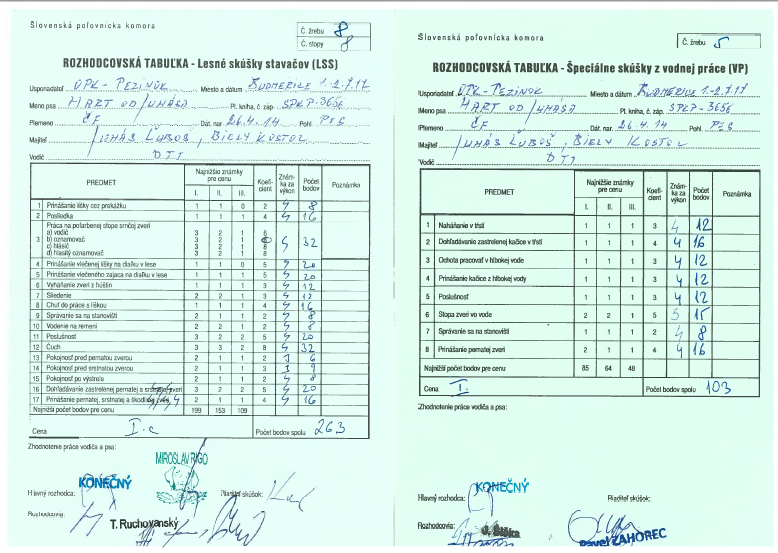 Slovenská poľovnícka komora
Č. žrebu 8
Č. stopy 8
ROZHODCOVSKÁ TABUĽKA - Lesné skúšky stavačov (LSS)
Usporiadateľ OPK - PEZINOK Miesto a dátum BUDMERICE 1.-2.7.17
Meno psa HART OD JUHÁSA Pl. kniha, č. záp. SPKP-3656
Plemeno ČF Dát. nar 26.4.14 Pohl PES
Majiteľ JUHÁS ĽUBOŠ, BIELY KOSTOL
Vodič DTT
PREDMET Najnižšie známky pre cenu Koeficient Známka za výkon Počet bodov Poznámka
I. II. III.
1 Prinášanie líšky cez prekážku 1 1 0 2 4 8
2 Posliedka 1 1 1 4 4 16
3 Práca na pofarbenej stope srnčej zveri
a) vodič 3 2 1 6
b) oznamovač 3 2 1 8 4 32
c) hlásič 3 2 1 8
d) hlasitý oznamovač 3 2 1 8
4 Prinášanie vlečenej líšky na diaľku v lese 1 1 0 5 4 20
5 Prinášanie vlečeného zajaca na diaľku v lese 1 1 1 5 4 20
6 Vyháňanie zveri z húštin 1 1 1 3 4 12
7 Sliedenie 2 2 1 3 4 12
8 Chuť do práce s líškou 1 1 1 4 4 16
9 Správanie sa na stanovišti 2 1 1 2 4 8
10 Vodenie na remeni 2 2 1 2 4 8
11 Poslušnosť 3 2 2 5 4 20
12 Čuch 3 3 2 8 4 32
13 Pokojnosť pred pernatou zverou 2 1 1 2 3 6
14 Pokojnosť pred srstnatou zverou 2 1 1 3 3 9
15 Pokojnosť po výstrele 2 1 1 2 4 8
16 Dohľadávanie zastrelenej pernatej a srstnatej zveri 3 2 2 5 4 20
17 Prinášanie pernatej, srstnatej a škodlivej zveri 2 1 1 4 4 16
Najnižší počet bodov pre cenu 199 153 109
Cena I.c Počet bodov spolu 263
Zhodnotenie práce vodiča a psa:
MIROSLAV RIGO
KONEČNÝ
Hlavný rozhodca: Riaditeľ skúšok:
Rozhodcovia: T. Ruchovanský
Slovenská poľovnícka komora
Č. žrebu 5
ROZHODCOVSKÁ TABUĽKA - Špeciálne skúšky z vodnej práce (VP)
Usporiadateľ OPK - PEZINOK Miesto a dátum BUDMERICE 1.-2.7.17
Meno psa HART OD JUHÁSA Pl. kniha, č. záp. SPKP-3656
Plemeno ČF Dát. nar 26.4.14 Pohl PES
Majiteľ JUHÁS ĽUBOŠ, BIELY KOSTOL
Vodič DTT
PREDMET Najnižšie známky pre cenu Koeficient Známka za výkon Počet bodov Poznámka
I. II. III.
1 Naháňanie v tŕstí 1 1 1 3 4 12
2 Dohľadávanie zastrelenej kačice v tŕstí 1 1 1 4 4 16
3 Ochota pracovať v hlbokej vode 1 1 1 3 4 12
4 Prinášanie kačice z hlbokej vody 1 1 1 3 4 12
5 Poslušnosť 1 1 1 3 4 12
6 Stopa zveri vo vode 2 2 1 3 5 15
7 Správanie sa na stanovišti 1 1 1 2 4 8
8 Prinášanie pernatej zveri 2 1 1 4 4 16
Najnižší počet bodov pre cenu 85 64 48
Cena I. Počet bodov spolu 103
Zhodnotenie práce vodiča a psa:
KONEČNÝ
Hlavný rozhodca: Riaditeľ skúšok:
Rozhodcovia: Pavel ZÁHOREC